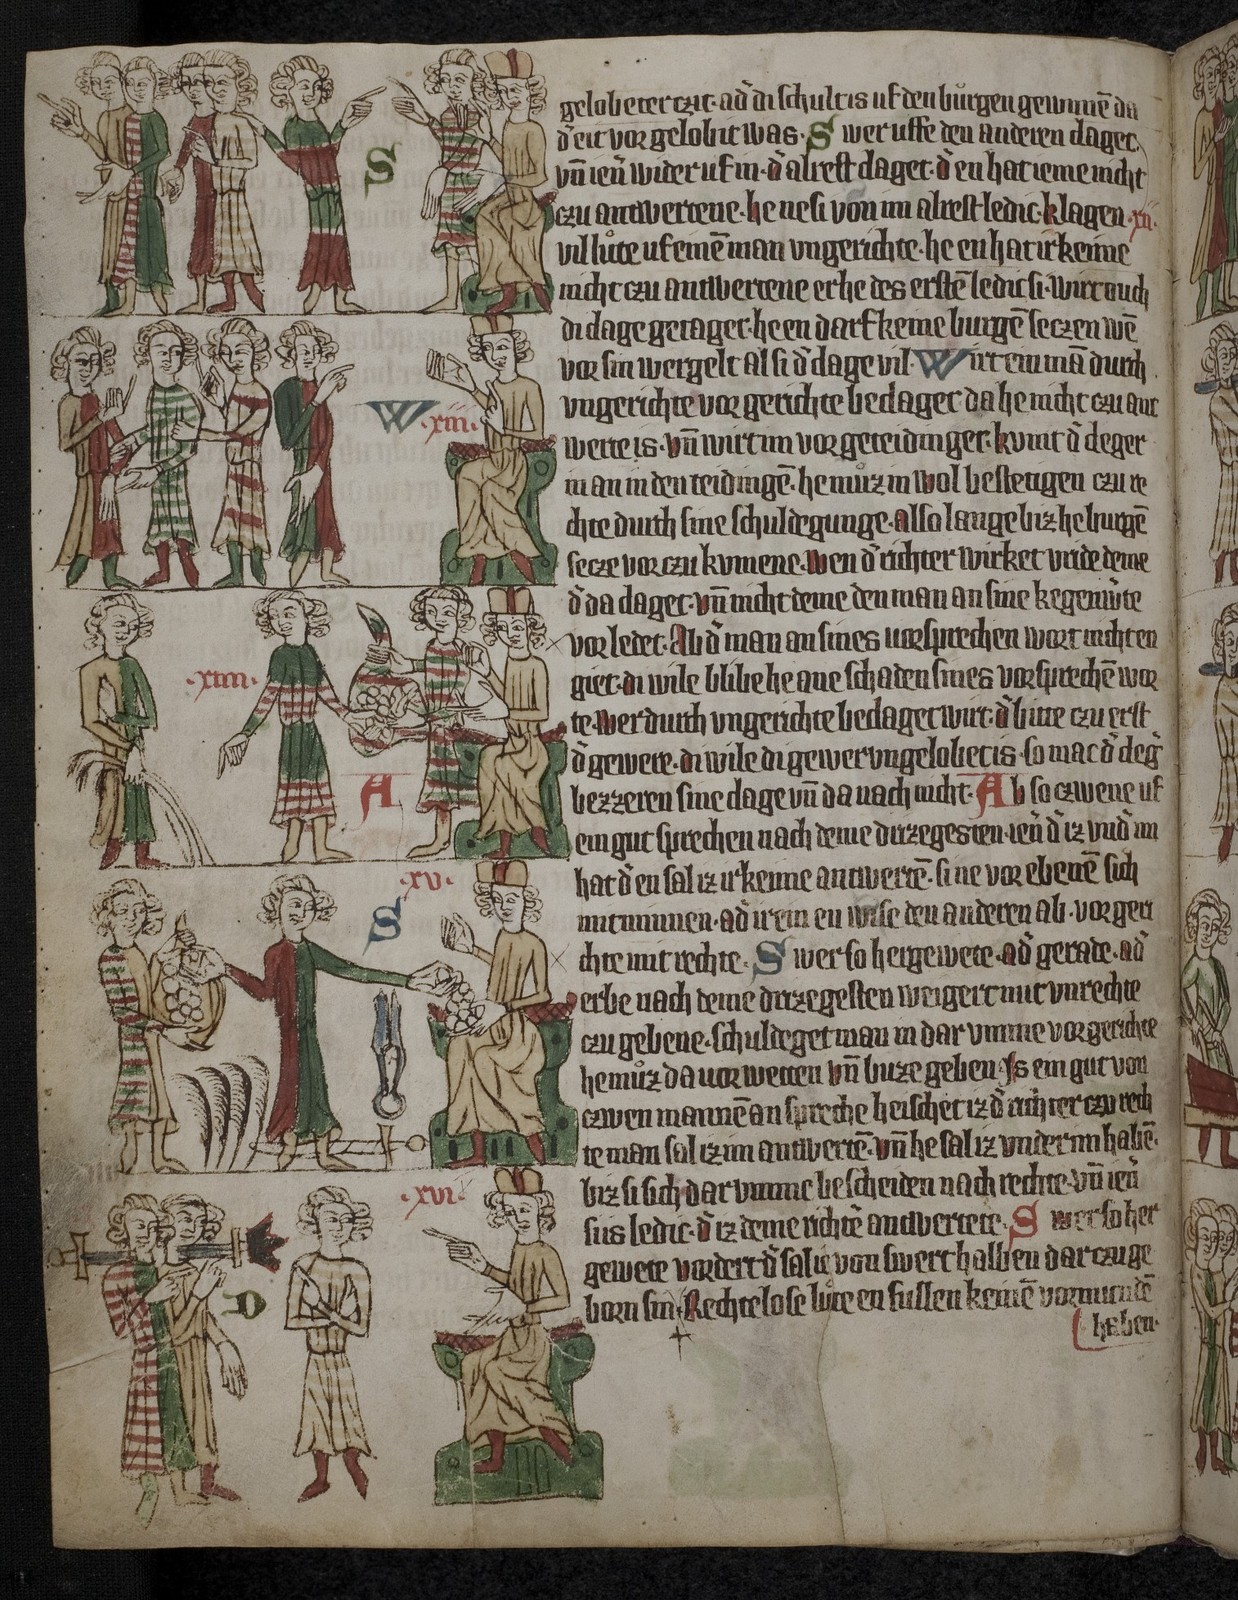 gelobeter tzit· ad̄ di schult is uf den bůrgen gewinnē da
d̄ eit vor gelobit was· S wer uffe den anderen daget·
vn̄ ien̄ wider uf in· d̄ alrest daget· d̄ en hat ieme nicht
czu antwertene· he ne si von im alrest ledic· klagen ·xii·
vil lůte uf einē man vngerichte· he en hat ir keime
nicht czu antwertene er he des erstē ledic si· wirt ouch
di dage getaget· he en darf keine burgē seczen wē
vor sin wergelt al si d̄ dage vil· Wirt ein mā durch
vngerichte vor gerichte bedaget da he nicht czu ant
werte is· vn̄ wirt im vor geteidinget· kumt d̄ deger
in an in den teidingē· he můz in wol bestetigen czu re
chte durch sine schuldegunge· also lange biz he burgē
secze vor czu kumene· wen d̄ richter wirket vride deme
d̄ da daget· vn̄ nicht deme den man an sine kegenw̄te
vor ledet· Ab d̄ man an sines vorsprechen wort nicht en
giet· di wile blibe he ane schaden sines vorsprechē wor
te· wer durch vngerichte bedaget wirt· d̄ bitte czu erst
d̄ gewere· di wile di gewer vngelobet is· so mac d̄ deḡ
bezzeren sine dage vn̄ da nach nicht· Ab so czwene uf
ein gut sprechen nach deme drizegesten· ien̄ d̄ iz vnd̄ im
hat d̄ en sal iz ir keime antwertē· si ne vor ebenē sich
mit minnen· ad̄ ir ein en wise den anderen ab· vor geri
chte mit rechte· S wer so hergewete· ad̄ gerade· ad̄
erbe nach deme drizegesten weigert mit vnrechte
czu gebene· schuldeget man in dar vmme vor gerichte
he můz da vor wetten vn̄ buze geben· Is ein gut von
czwen mannē an spreche heischet iz d̄ richter czu rech
te man sal iz im antwertē· vn̄ he sal iz vnder im habē·
biz si sich dar vmme bescheiden nach rechte· vn̄ ien̄
sus ledic· d̄ iz deme richtē antwertete· S wer so her
gewete vordert d̄ sal ie von swert halben dar czu ge
born sin· Rechtelose lůte en sullen keinē vormundē
haben·
S
W ·xiii·
·xiiii·
A
·xv·
S
·xvi·
D